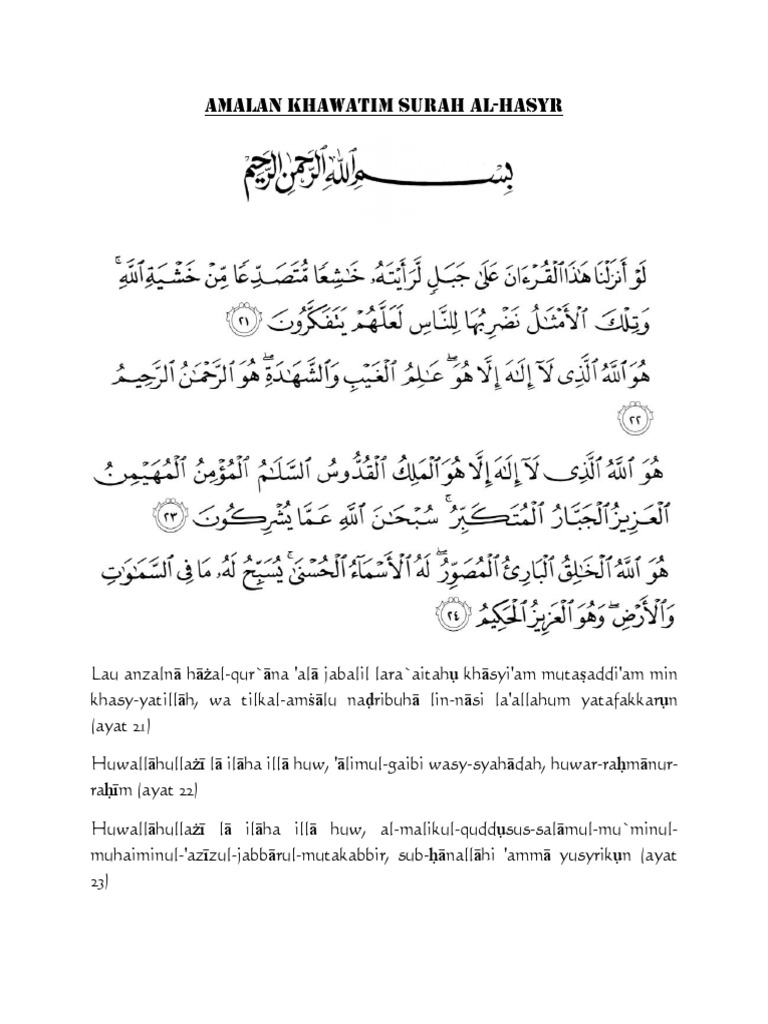 AMALAN KHAWATIM SURAH AL-HASYR
بِسْمِ ٱللَّهِ ٱلرَّحْمَٰنِ ٱلرَّحِيمِ
لَوْ أَنزَلْنَا هَٰذَا ٱلْقُرْءَانَ عَلَىٰ جَبَلٍ لَّرَأَيْتَهُۥ خَٰشِعًا مُّتَصَدِّعًا مِّنْ خَشْيَةِ ٱللَّهِ ۚ
وَتِلْكَ ٱلْأَمْثَٰلُ نَضْرِبُهَا لِلنَّاسِ لَعَلَّهُمْ يَتَفَكَّرُونَ ٢١
هُوَ ٱللَّهُ ٱلَّذِى لَآ إِلَٰهَ إِلَّا هُوَ ۖ عَٰلِمُ ٱلْغَيْبِ وَٱلشَّهَٰدَةِ ۖ هُوَ ٱلرَّحْمَٰنُ ٱلرَّحِيمُ
٢٢
هُوَ ٱللَّهُ ٱلَّذِى لَآ إِلَٰهَ إِلَّا هُوَ ٱلْمَلِكُ ٱلْقُدُّوسُ ٱلسَّلَٰمُ ٱلْمُؤْمِنُ ٱلْمُهَيْمِنُ
ٱلْعَزِيزُ ٱلْجَبَّارُ ٱلْمُتَكَبِّرُ ۚ سُبْحَٰنَ ٱللَّهِ عَمَّا يُشْرِكُونَ ٢٣
هُوَ ٱللَّهُ ٱلْخَٰلِقُ ٱلْبَارِئُ ٱلْمُصَوِّرُ ۖ لَهُ ٱلْأَسْمَآءُ ٱلْحُسْنَىٰ ۚ يُسَبِّحُ لَهُۥ مَا فِى ٱلسَّمَٰوَٰتِ
وَٱلْأَرْضِ ۖ وَهُوَ ٱلْعَزِيزُ ٱلْحَكِيمُ ٢٤
Lau anzalnā hāżal-qur`āna 'alā jabalil lara`aitahụ khāsyi'am mutaṣaddi'am min
khasy-yatillāh, wa tilkal-amṡālu naḍribuhā lin-nāsi la'allahum yatafakkarụn
(ayat 21)
Huwallāhullażī lā ilāha illā huw, 'ālimul-gaibi wasy-syahādah, huwar-raḥmānur-
raḥīm (ayat 22)
Huwallāhullażī lā ilāha illā huw, al-malikul-quddụsus-salāmul-mu`minul-
muhaiminul-'azīzul-jabbārul-mutakabbir, sub-ḥānallāhi 'ammā yusyrikụn (ayat
23)